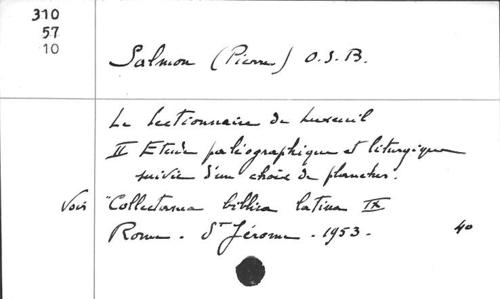 310
57
10
Salmon (Pierre) O.S.B.
Le lectionnaire de Luxeuil
II Etude paléographique et liturgique
suivie d'un choix de planches.
Voir "Collectanea biblica latina IX
Rome - St Jérome - 1953 -
40